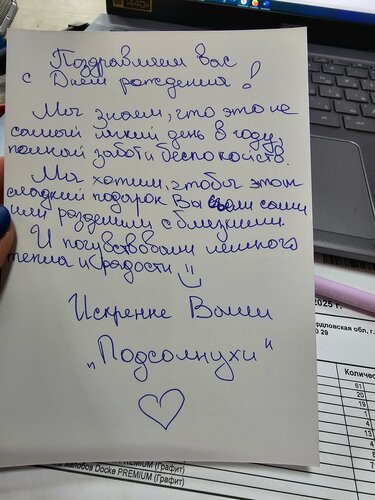 Поздравляем вас
с Днем рождения!
Мы знаем, что это не
самый лёгкий день в году,
полный забот и беспокойств.
Мы хотим, чтобы этот
сладкий подарок Вы съели сами
или разделили с близкими.
И почувствовали немного
тепла и радости
Искренне Ваши
„Подсолнухи"
2025 г.
рдловская обл, г.
Количес
61
20
19
1
4
13
4
желобов Docke PREMIUM (Графит)
PREMIUM (Графит)